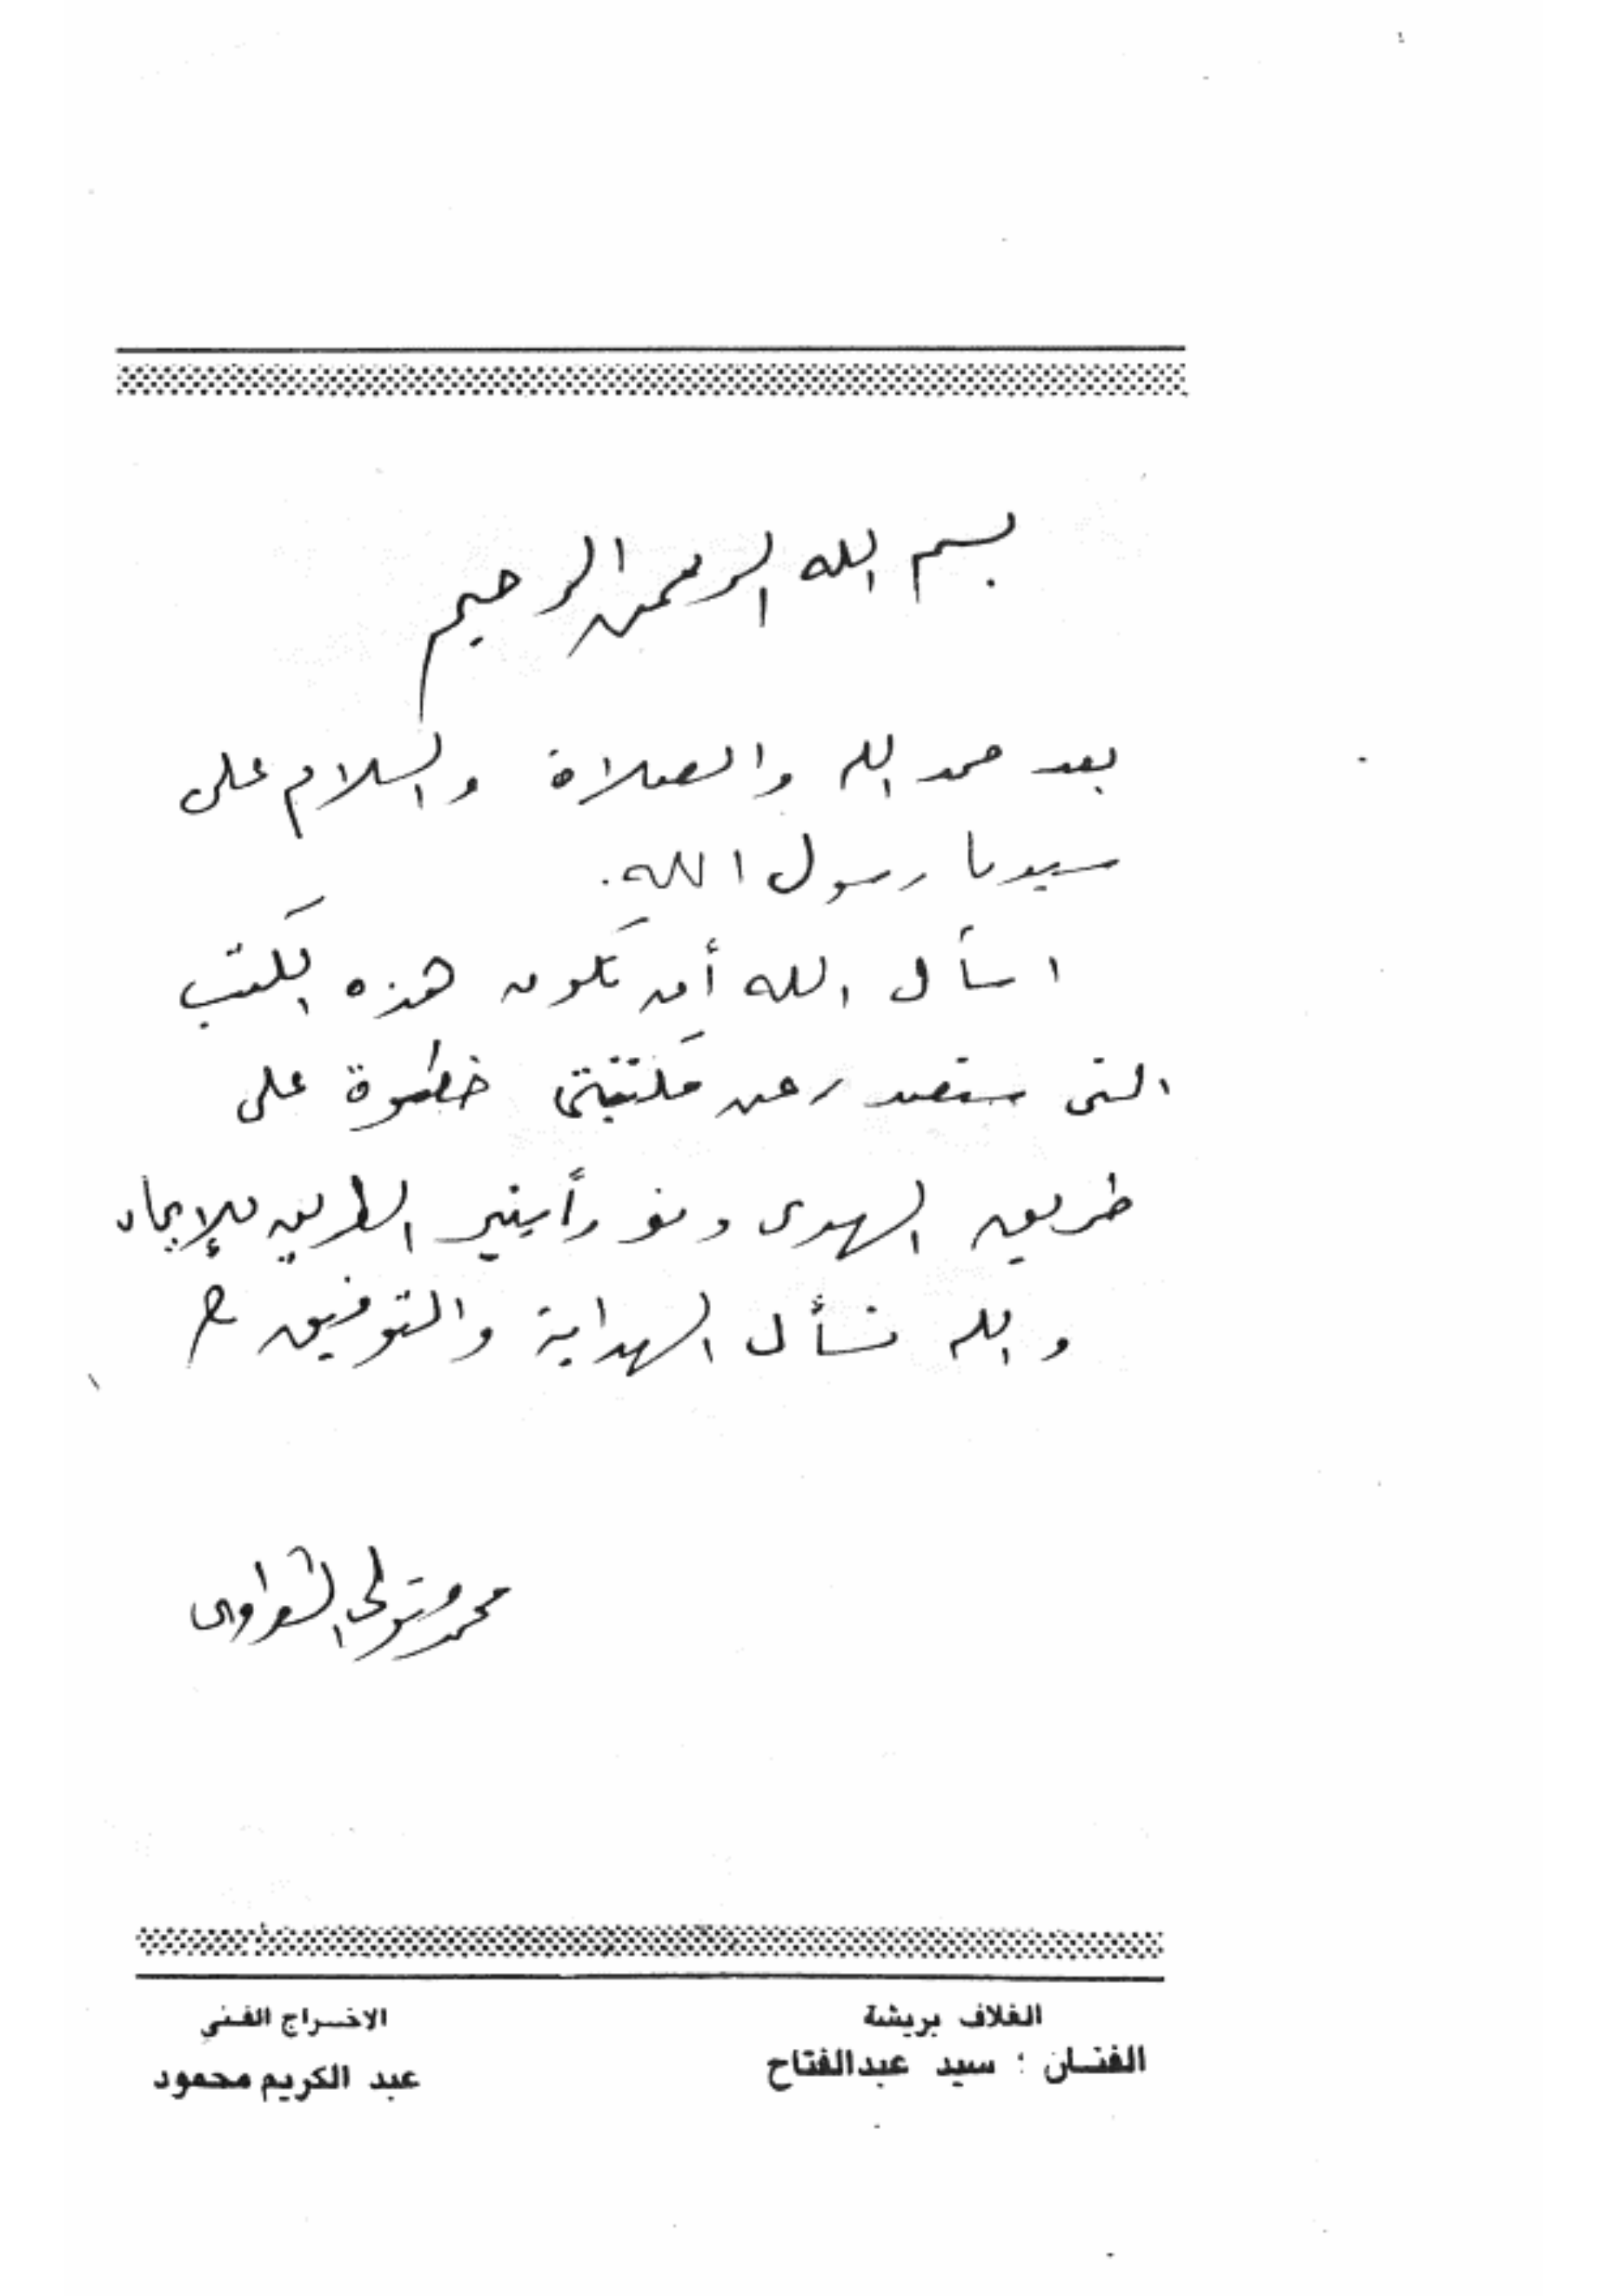 بسم الله الرحمن الرحيم
بعد حمد الله والصلاة والسلام على
سيدنا رسول الله.
اسأل الله أن تكون هذه الكتب
التى ستصدر عن مكتبتى خطوة على
طريق الهدى ونوراً ينير الطريق للإيمان
والله نسأل الهداية والتوفيق
محمد متولى الشعراوى
الغلاف بريشة
الفنــان : سيد عبدالفتاح
الاخــراج الفـنى
عبد الكريم محمود